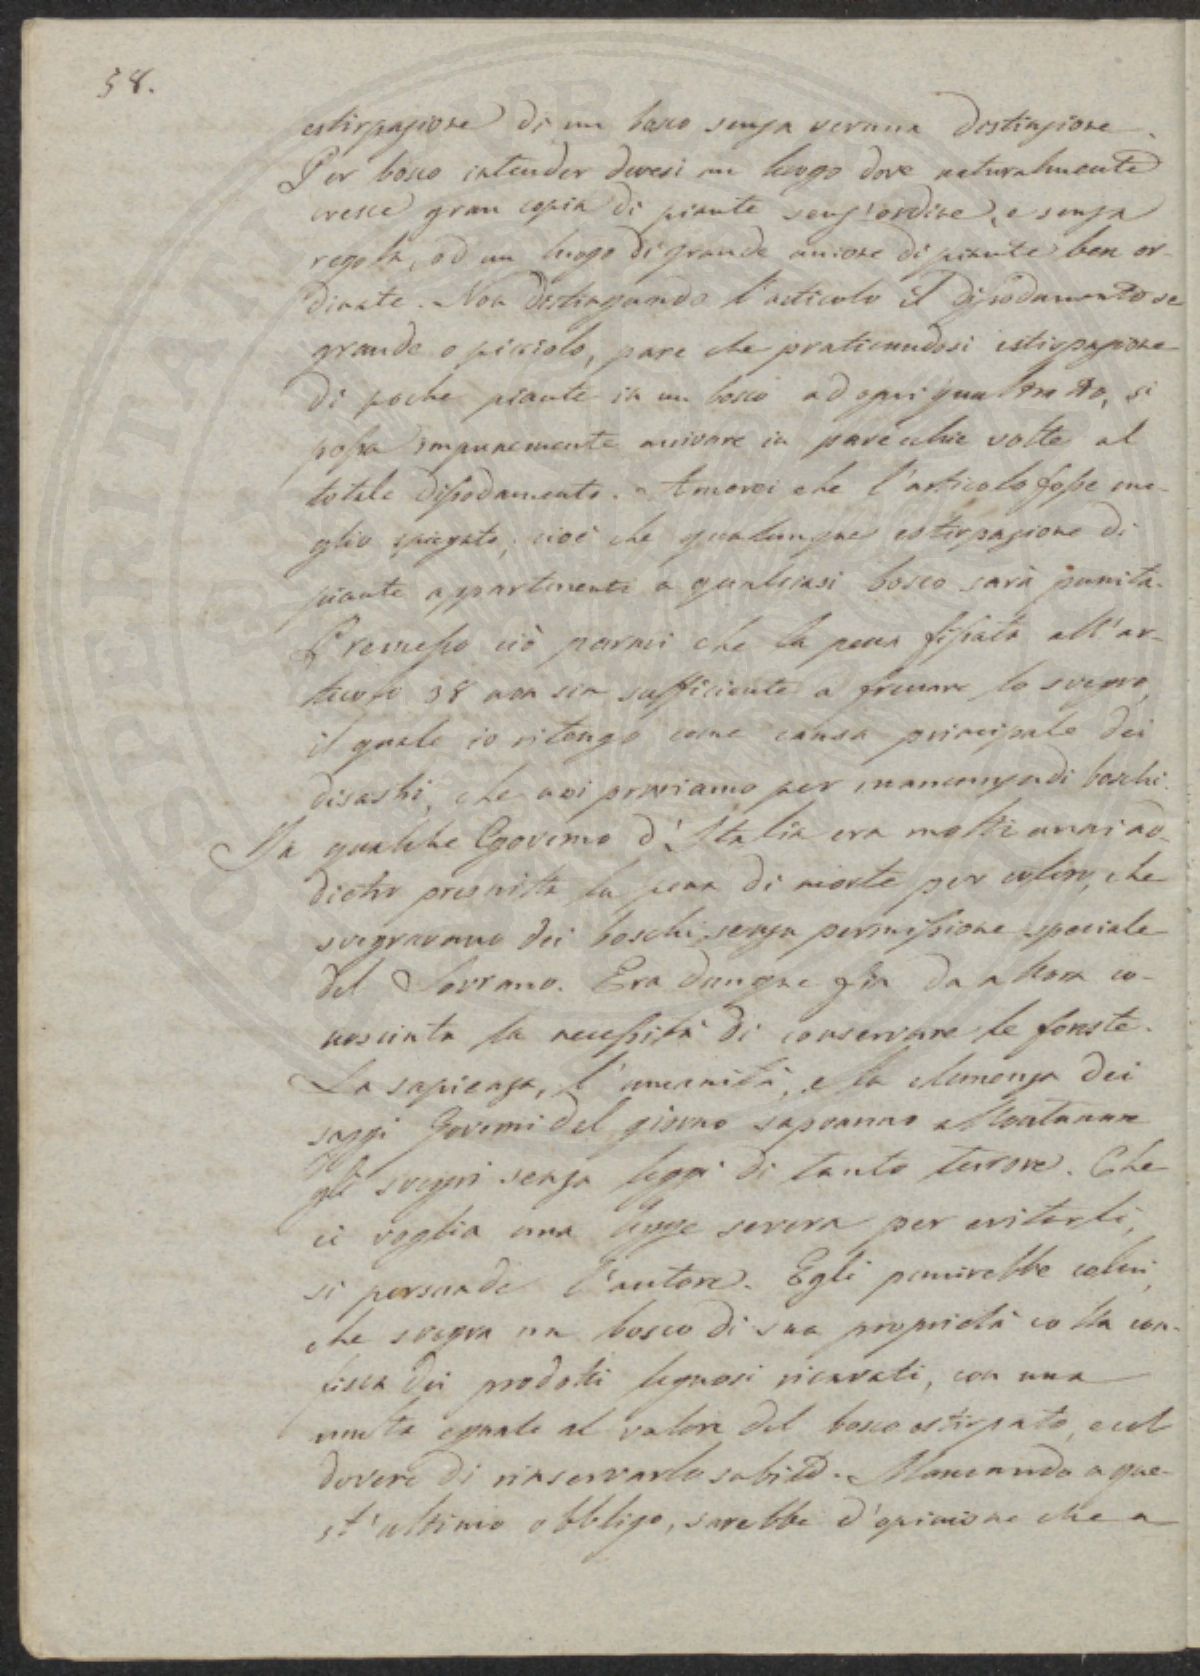 58.
estirpazione di un bosco senza veruna distinzione.
Per bosco intender devesi un luogo dove naturalmente
cresce gran copia di piante senz'ordine, e senza
regola, od un luogo di grande unione di piante ben or-
dinate. Non distinguendo l'articolo il dissodamento se
grande o picciolo, pare che praticandosi estirpazione
di poche piante in un bosco ad ogni qual tratto, si
possa impunemente arrivare in parecchie volte al
totale dissodamento. Amerei che l'articolo fosse me-
glio spiegato, cioè che qualunque estirpazione di
piante appartenenti a qualsiasi bosco sarà punita.
Premesso ciò parmi che la pena fissata all'ar-
ticolo 38 non sia sufficiente a frenare lo svegro,
il quale io ritengo come causa principale dei
disastri, che noi proviamo per mancanza di boschi.
Ma qualche Governo d'Italia era molti anni ad-
dietro prescritta la pena di morte per coloro, che
svegravano dei boschi senza permissione speciale
del Sovrano. Era dunque fin da allora co-
nosciuta la necessità di conservare le foreste.
La sapienza, l'umanità, e la clemenza dei
saggi Governi del giorno sapranno allontanare
gli svegri senza leggi di tanto terrore. Che
ci voglia una legge severa per evitarli,
si persuade l'autore. Egli punirebbe colui,
che svegra un bosco di sua proprietà colla con-
fisca dei prodotti legnosi ricavati, con una
multa eguale al valore del bosco estirpato, e col
dovere di rinselvarlo subito. Mancando a que-
st'ultimo obbligo, sarebbe d'opinione che a